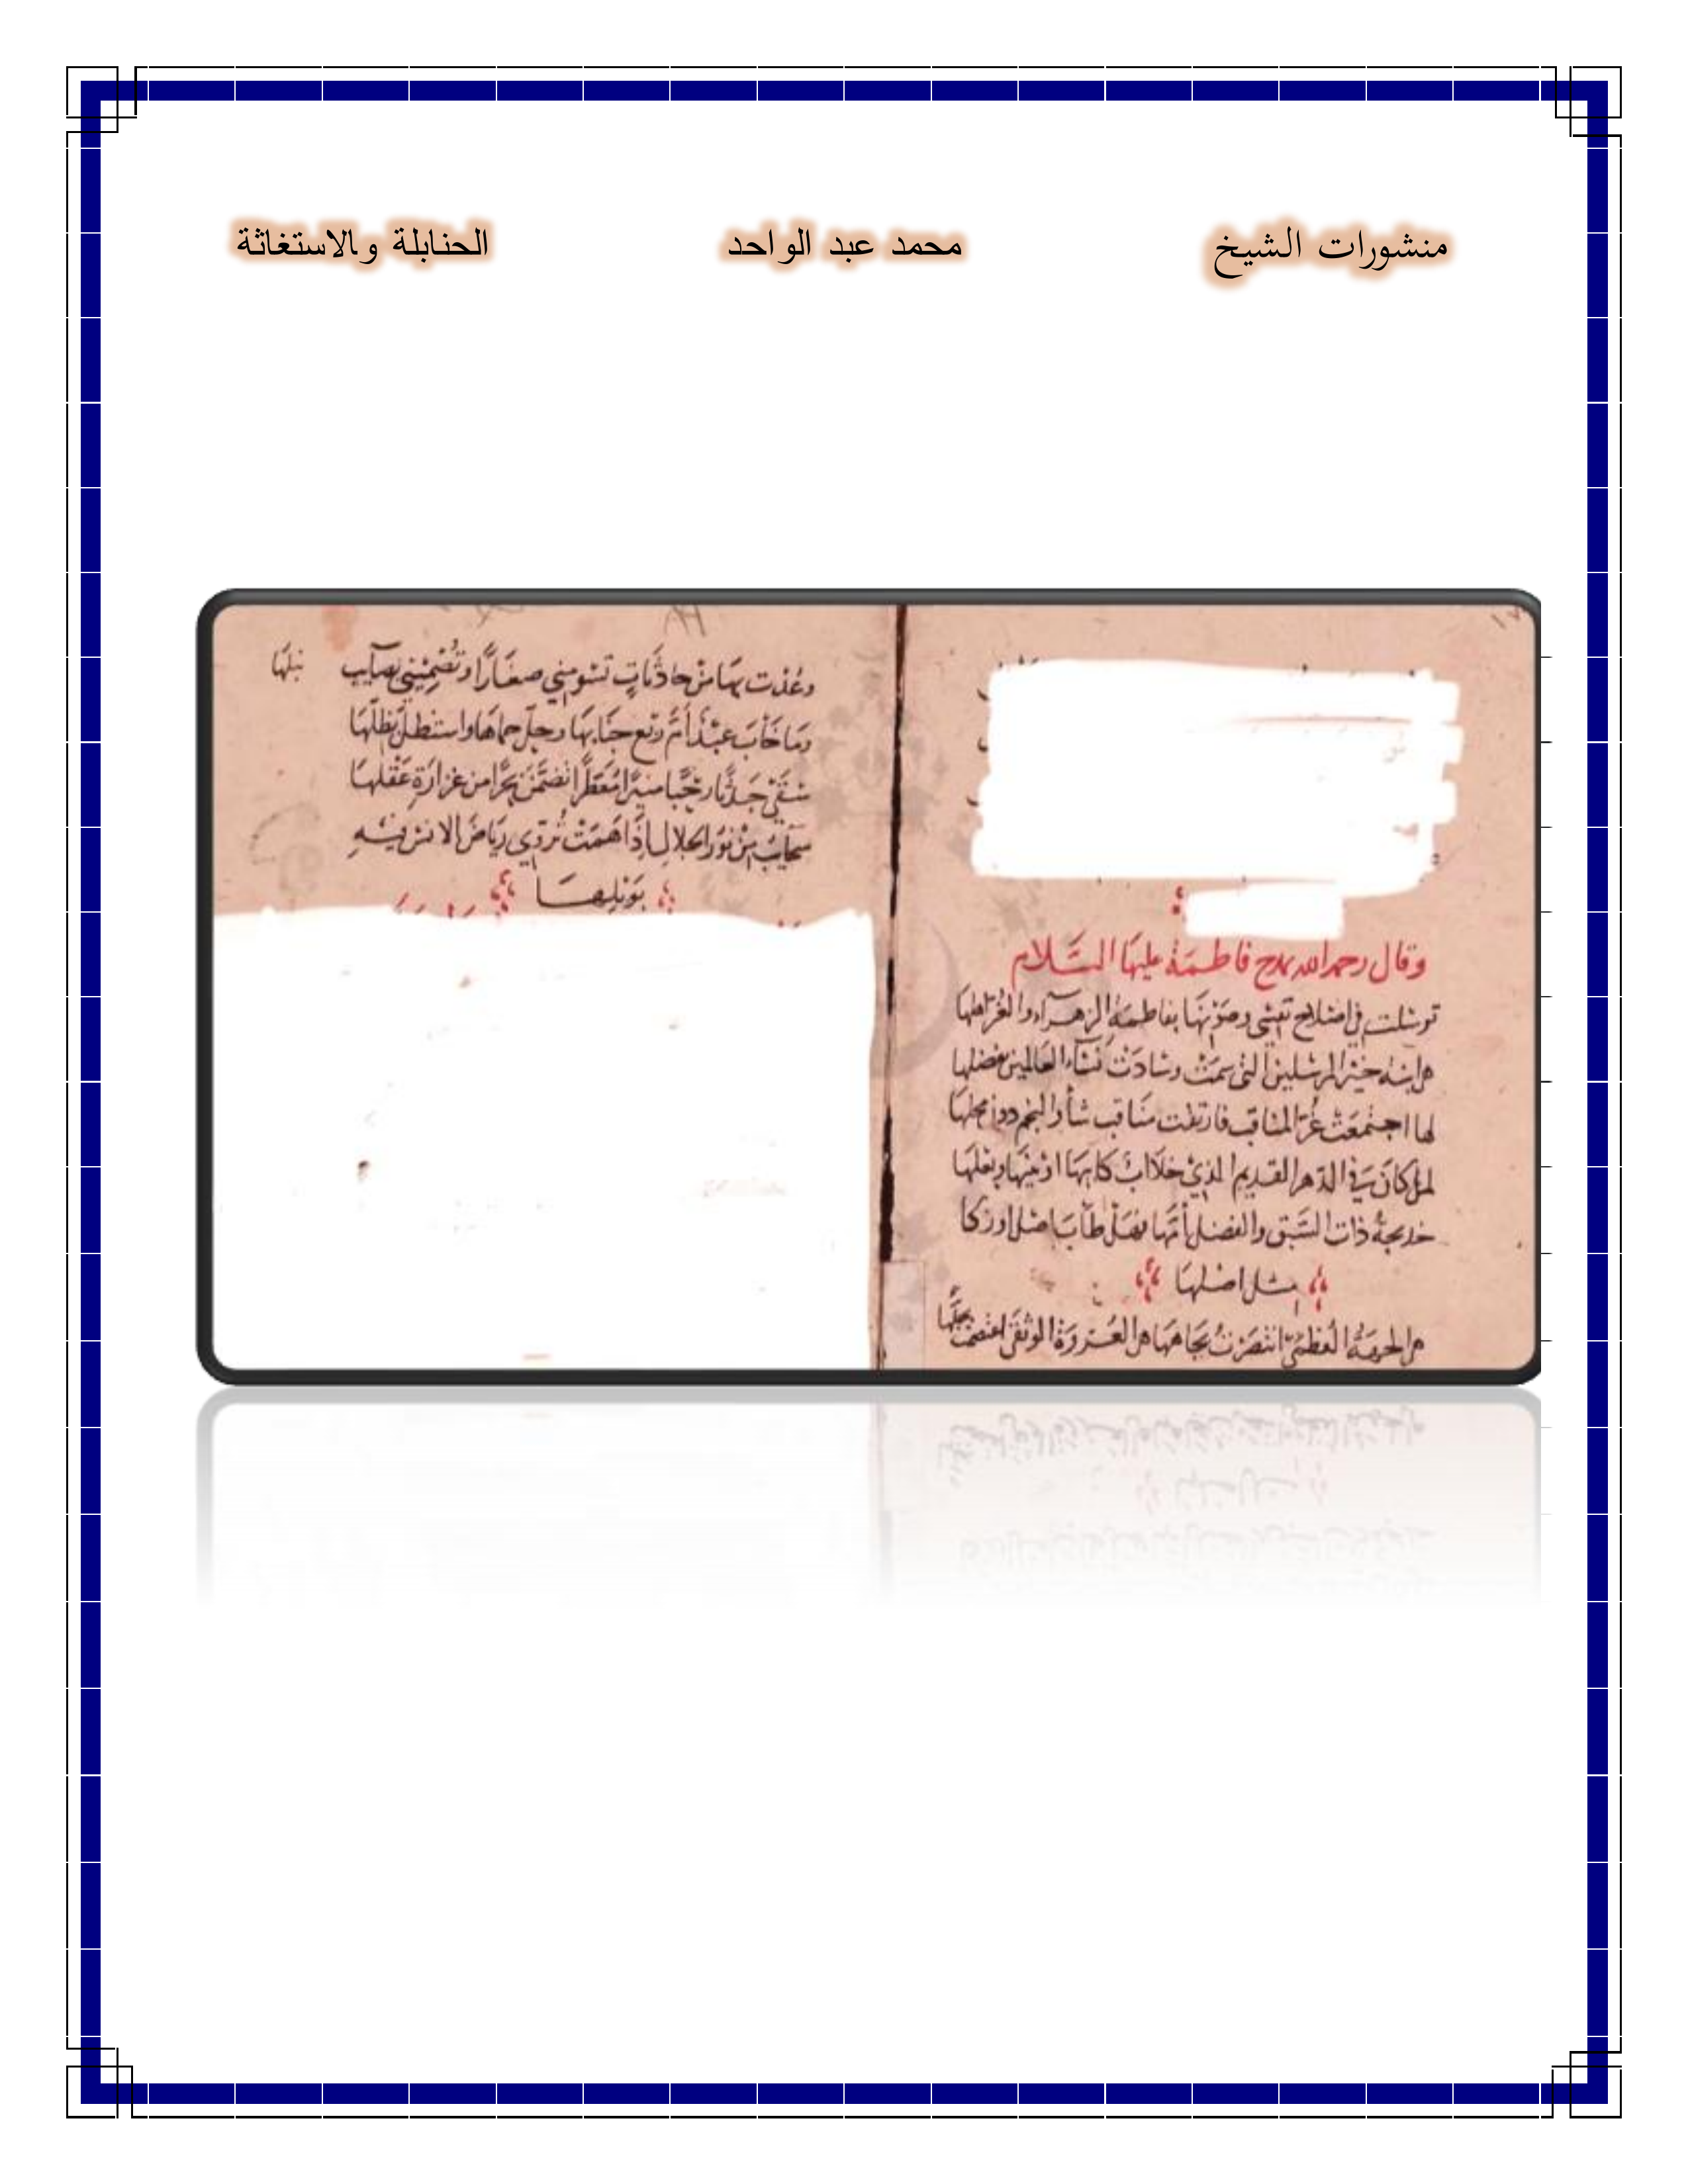 منشورات الشيخ محمد عبد الواحد الحنابلة والاستغاثة
وقال رحمه الله يمدح فاطمة عليها السَّلام
توسّلت في اصلاح نفسي وصَوْنهَا بفاطمة الزهرآء والغُرّ اهلها
هي ابنة خير المرسلين التي سَمَتْ وسَادَتْ نسَآء العالمين بفضلها
لها اجتمعَتْ غُرّ المناقب فارتقت مناقب شأو النجم دون محلهَا
لمن كانَ في الدهر القديم الذي خلا
خديجة ذات السَّبق والفضل أمّها فهَل طابَ اصل او زكا
مثل اصلهَا
هي الحرمَةُ العُظمَى انتصَرْتُ بجاهها هي العُروَة الوثقى اعتصمتُ بحبلها
وعُذت بهَا منْ حادثاتٍ صغَارًا وتُصْمِيْني نبلهَا
ومَا خَابَ عبْدٌ أمَّ ربع جنَابهَا وحلّ حماها واستظلّ بظلّها
سَقَى جَدَثًا رحْبًا منيرًا مُعَطَّرًا تضَمَّنَ بحرًا من غزارَةِ عَقْلهَا
سَحَابٌ مِنْ نُور الجلال اذَا هَمَتْ تُرَوّي ريَاضَ الانس فيه
بوَبْلهَا